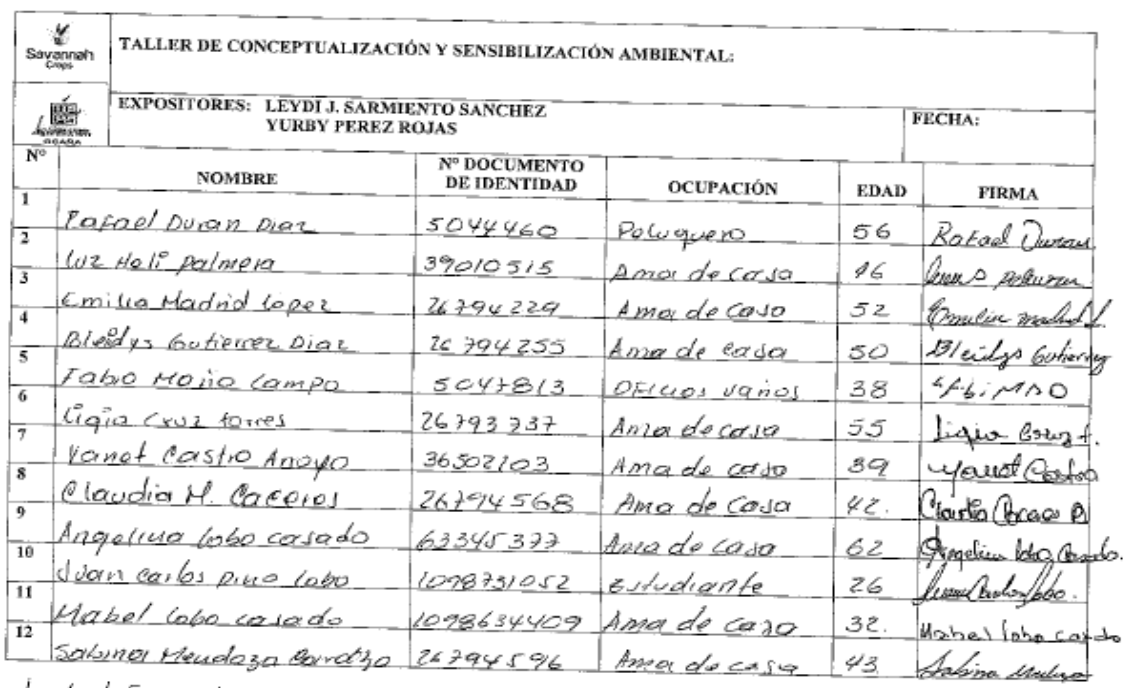 Savannah
Crops
TALLER DE CONCEPTUALIZACIÓN Y SENSIBILIZACIÓN AMBIENTAL:
EXPOSITORES: LEYDI J. SARMIENTO SANCHEZ
YURBY PEREZ ROJAS
FECHA:
N° NOMBRE N° DOCUMENTO DE IDENTIDAD OCUPACIÓN EDAD FIRMA
1 Rafael Duran Diaz 5044460 Peluquero 56 Rafael Duran
2 Luz Heli palmera 39010515 Ama de casa
3 Emilia Madrid Lopez 26794229 Ama de Casa 52 Emilia madrid L.
4 Bleidys Gutierrez Diaz 26794255 Ama de casa 50 Bleidys Gutierrez
5 Fabio Campo 5047813 Oficios varios 38
6 Ligia Cruz torres 26793737 Ama de casa 55 Ligia Cruz t.
7 Yanet Castro Arroyo 36502103 Ama de casa 39 Yanet Castro
8 Claudia M. Caceres 26794568 Ama de Casa 42. Claudia
9 Angelina lobo casado 63345377 Ama de Casa 62 Angelina lobo Casado.
10 Juan carlos pino lobo 1098731052 Estudiante 26
11 Mabel lobo casado 1098634409 Ama de casa 32. Mabel lobo casado
12 Sabina Mendoza 26794596 Ama de casa 43 Sabina